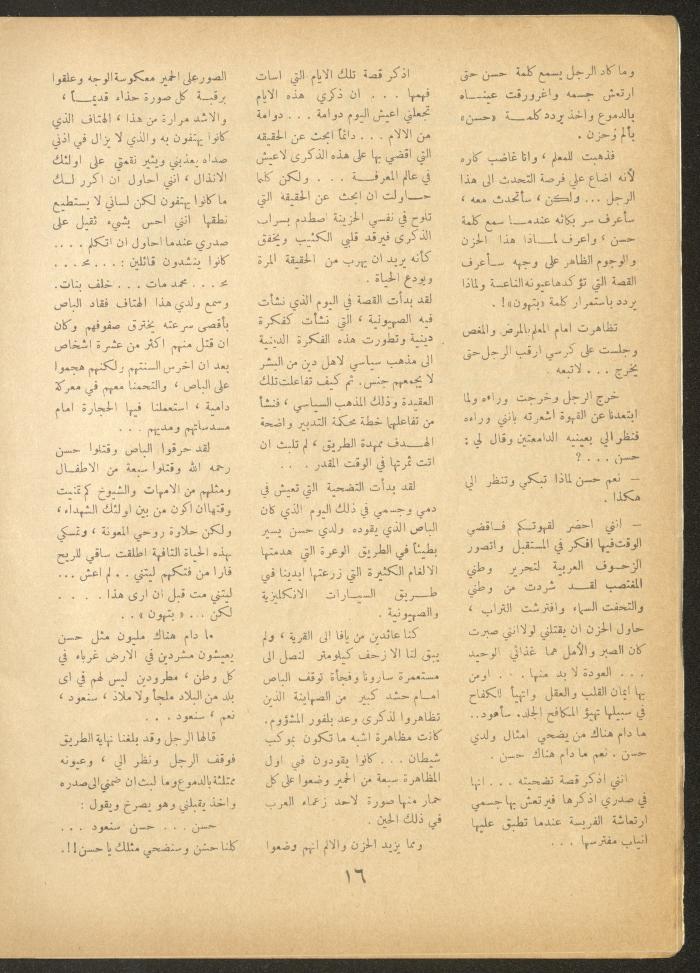 وما كاد الرجل يسمع كلمة حسن حتى
ارتعش جسمه واغرورقت عينـــاه
بالدموع واخذ يردد كلمـــة «حسن»
بألم وُحزن .
فذهبت للمعلم ، وانا غاضب كاره
لأنه اضاع علي فرصة التحدث الى هذا
الرجل ... ولكن ، سأتحدث معه ،
سأعرف سر بكائه عندمـا سمع كلمة
حسن ، واعرف لمـاذا هذا الحزن
والوجوم الظاهر على وجهه سـأعرف
القصة التي تؤكدها عيونه الناعسة ولماذا
يردد باستمرار كلمة «بتهون»! .
تظاهرت امام المعلم بالمرض والمغص
وجلست على كرسي ارقب الرجل حتى
يخرج ... لاتبعه .
خرج الرجل وخرجت وراءه ولما
ابتعدنا عن القهوة اشعرته بانني وراءه
فنظر الي بعينيه الدامعتين وقال لي :
حسن ... ؟
— نعم حسن لماذا تبكي وتنظر الي
هكذا .
— انني احضر لقهوتكم فـاقضي
الوقت فيها افكر في المستقبل واتصور
الزحـوف العربية لتحرير وطني
المغتصب لقـد شردت من وطني
والتحفت السماء وافترشت التراب ،
حاول الحزن ان يقتلني لولا انني صبرت
كان الصبر والأمل هما غذائي الوحيد
... العودة لا بد منها ... اومن
بها ايمان القلب والعقل واتهيأ للكفاح
في سبيلها تهيؤ المكافح الجلد. سأهود..
ما دام هناك من يضحي امثال ولدي
حسن . نعم ما دام هناك حسن .
انني اذكر قصة تضحيته ... انها
في صدري اذكرها فيرتعش بها جسمي
ارتعاشة الفريسة عندما تطبق عليها
انياب مفترسها ...
اذكر قصة تلك الايام التي اسأت
فهمها ... ان ذكري هذه الايام
تجعلني اعيش اليوم دوامة ... دوامة
من الالام ... دائماً ابحث عن الحقيقه
التي اقضي بها على هذه الذكرى لاعيش
في عالم المعرفـــة ... ولكن كلما
حــاولت ان ابحث عن الحقيقه التي
تلوح في نفسي الحزينة اصطدم بسراب
الذكرى فيرقد قلبي الكئيب ويخفق
كأنه يريد ان يهرب من الحقيقة المرة
ويودع الحياة .
لقد بدأت القصة في اليوم الذي نشأت
فيه الصهيونية ، التي نشأت كفكرة
دينية وتطورت هذه الفكرة الدينية
الى مذهب سياسي لاهل دين من البشر
لا يجمعهم جنس. ثم كيف تفاعلت تلك
العقيدة وذلك المذهب السياسي ، فنشأ
من تفاعلها خطة محكمة التدبير واضحة
الهــدف ممهدة الطريق ، لم تلبث ان
اتت ثمرتها في الوقت المقدر ...
لقد بدأت التضحية التي تعيش في
دمي وجسمي في ذلك اليوم الذي كان
الباص الذي يقوده ولدي حسن يسير
بطيئاً في الطريق الوعرة التي هدمتها
الالغام الكثيرة التي زرعتها ايدينا في
طـــريق السيـارات الانكليزية
والصهيونية .
كنا عائدين من يافا الى القرية ، ولم
يبق لنا الا زحف كيلومتر لنصل الى
مستعمرة سارونا وفجأة توقف الباص
امــام حشد كبير من الصهاينة الذين
تظاهروا لذكرى وعد بلفور المشؤوم.
كانت مظاهرة اشبه ما تكون بموكب
شيطان ... كانوا يقودون في اول
المظاهرة سبعة من الحمير وضعوا على كل
حمار منها صورة لاحد زعماء العرب
في ذلك الحين .
ومما يزيد الحزن والالم انهم وضعوا
الصور على الحمير معكوسة الوجه وعلقوا
برقبة كل صورة حذاء قديمـاً ،
والاشد مرارة من هذا ، الهتاف الذي
كانوا يهتفون به والذي لا يزال في اذني
صداه يعذبني ويثير نقمتي على اولئك
الانذال ، انني احاول ان اكرر لــك
ما كانوا يهتفون لكن لساني لا يستطيع
نطقها انني احس بشيء ثقيل على
صدري عندما احاول ان اتكلم ....
كانوا ينشدون قائلين : ... محـ ...
محـ ... محمد مات ... خلف بنات.
وسمع ولدي هذا الهتاف فقاد الباص
بأقصى سرعته يخترق صفوفهم وكان
ان قتل منهم اكثر من عشرة اشخاص
بعد ان اخرس السنتهم ولكنهم هجموا
على الباص ، والتحمنا معهم في معركة
دامية ، استعملنا فيها الحجارة امام
مسدساتهم ومديهم ...
لقد حرقوا الباص وقتلوا حسن
رحمه الله وقتلوا سبعة من الاطفــال
ومثلهم من الامهات والشيوخ كم تمنيت
وقتها ان اكون من بين اولئك الشهداء ،
ولكن حلاوة روحي المعونة ، وتمسكي
بهذه الحياة التافهة اطلقت ساقي للريح
فارا من فتكهم ليتني .. لم اعش ...
ليتني مت قبل ان ارى هذا . . . .
لكن ... « بتهون » ..
ما دام هناك مليون مثل حسن
يعيشون مشردين في الارض غرباء في
كل وطن ، مطرودين ليس لهم في اى
بلد من البلاد ملجأ ولا ملاذ ، سنعود ،
نعم ، سنعود ...
قالها الرجل وقد بلغنا نهاية الطريق
فوقف الرجل ونظر الي ، وعيونه
ممتلئة بالدموع وما لبث ان ضمني الى صدره
واخذ يقبلني وهو يصرخ ويقول :
حسن ... حسن سنعود ...
كلنا حسن وسنضحي مثلك يا حسن!!.
١٦